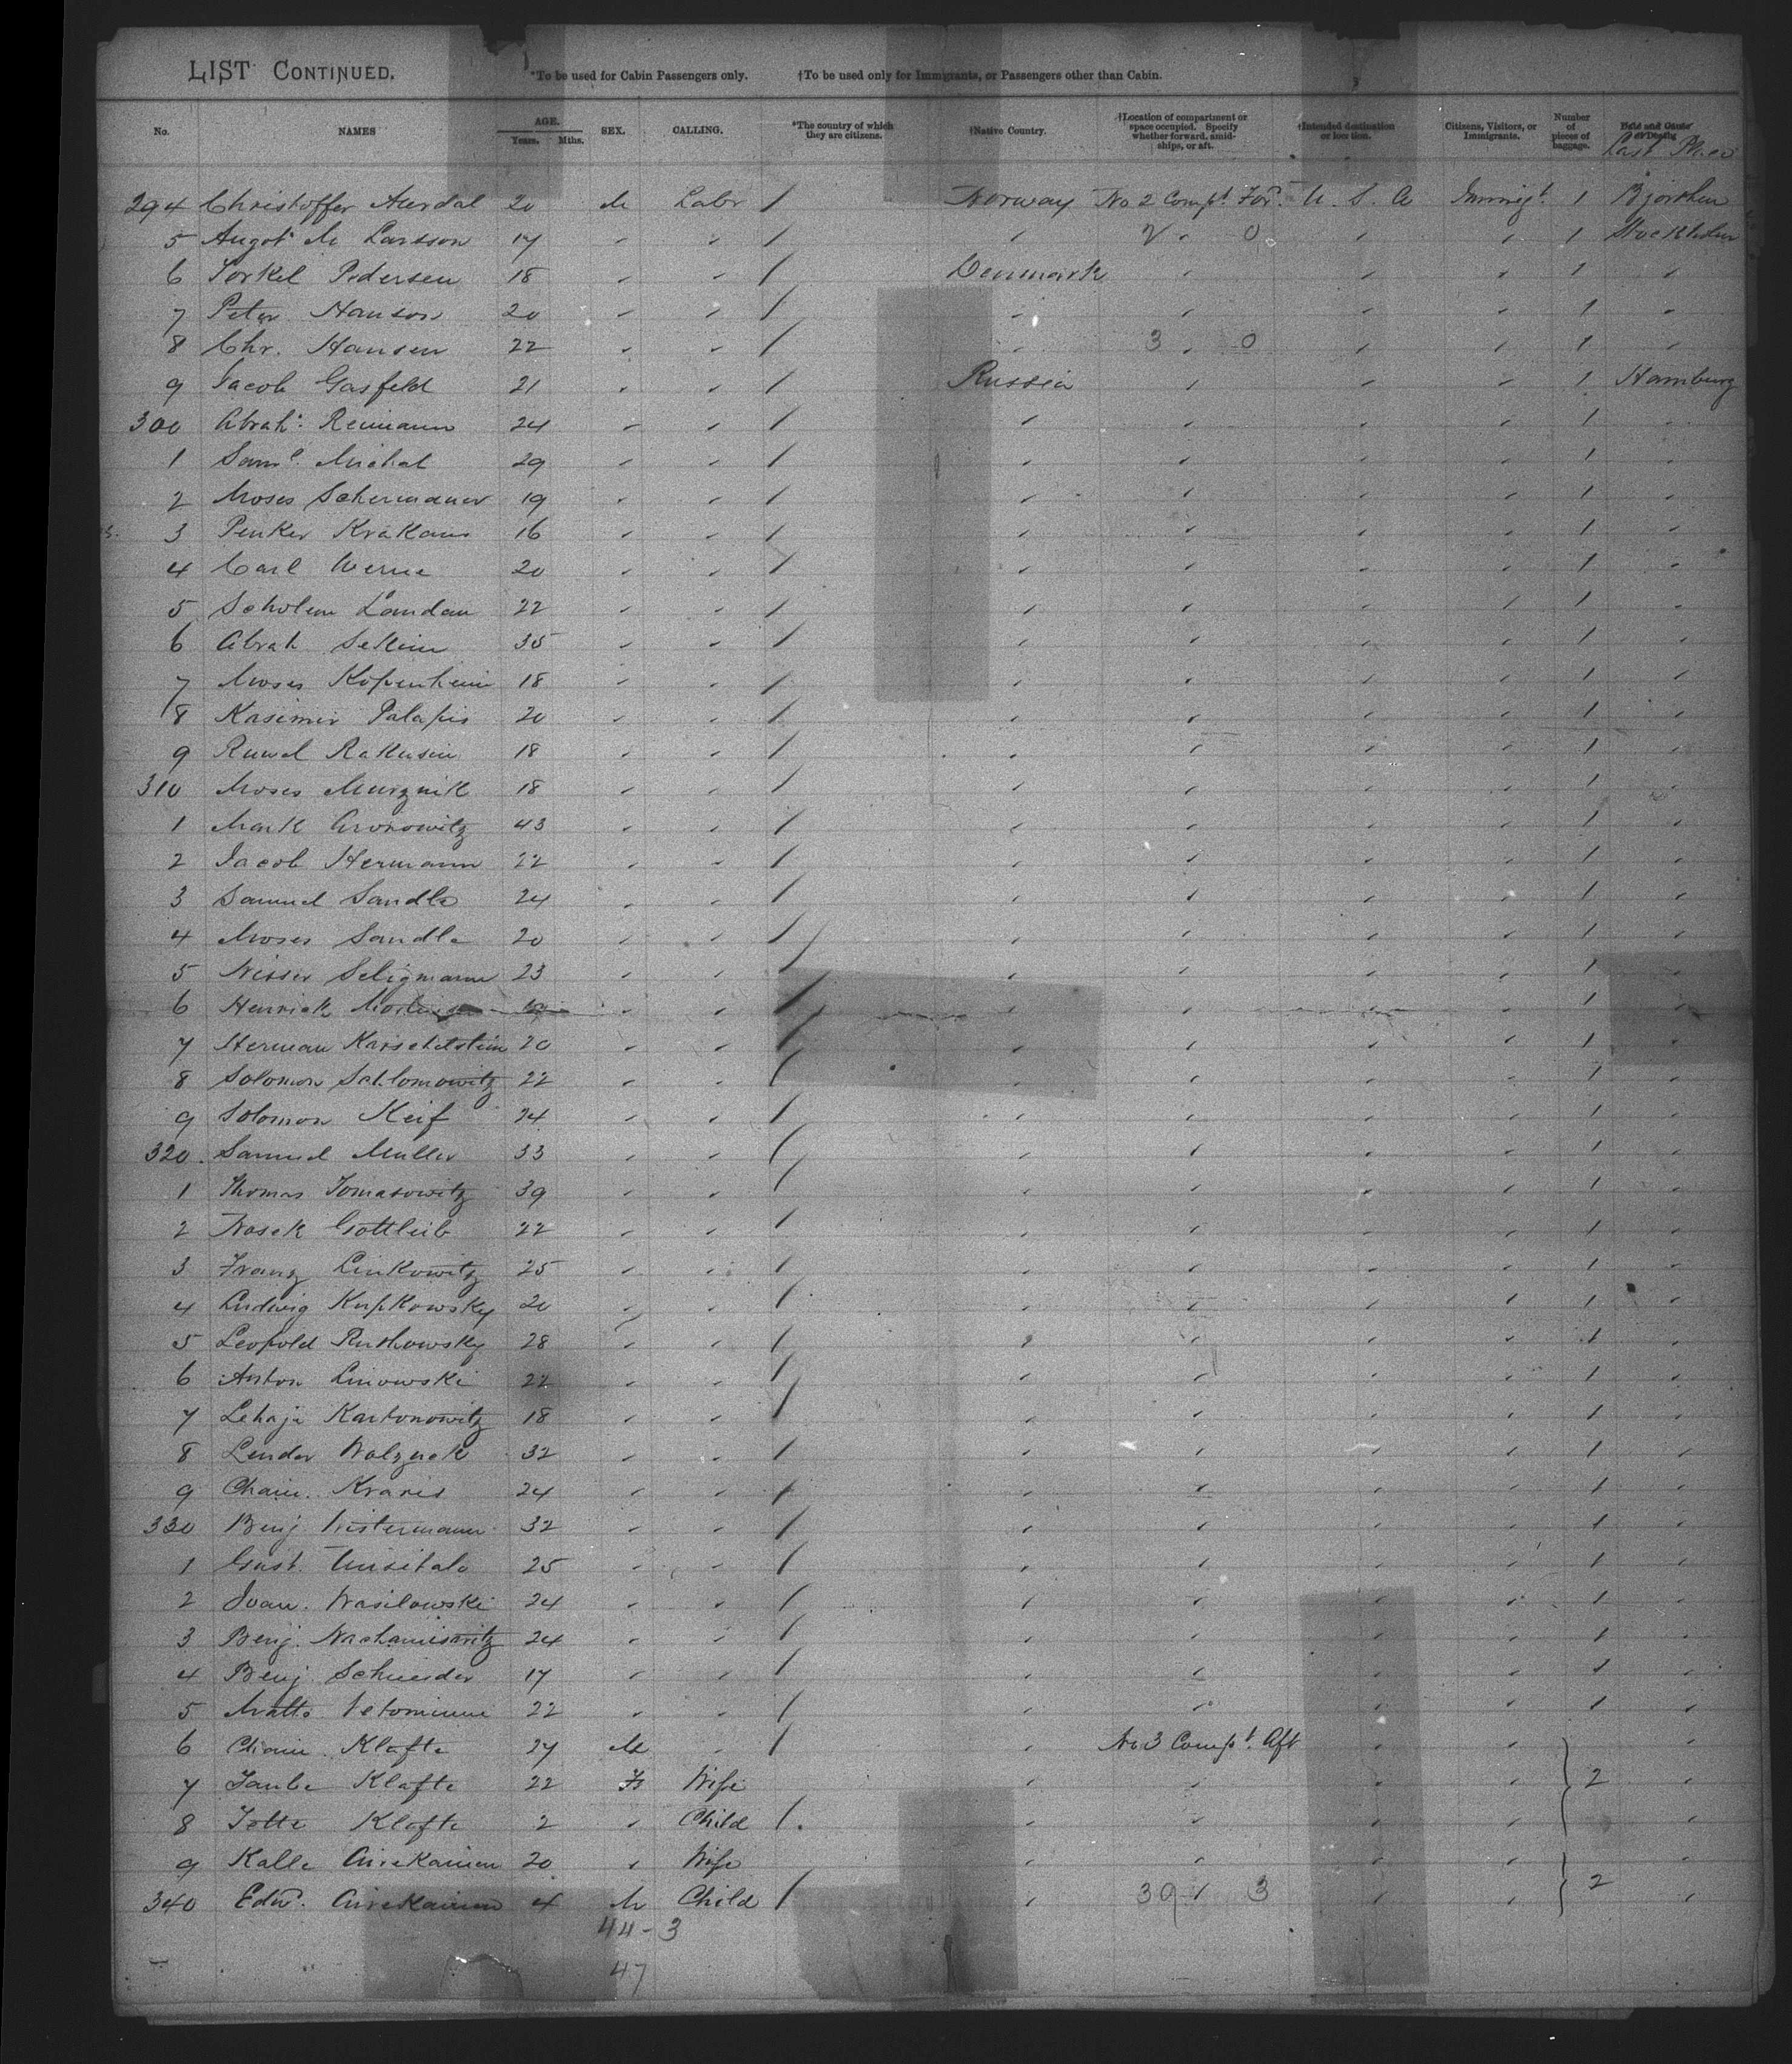 LIST CONTINUED. *To be used for Cabin Passengers only. †To be used only for Immigrants, or Passengers other than Cabin.
No. NAMES AGE. Years. Mths. SEX. CALLING. *The country of which they are citizens. †Native Country. †Location of compartment or space occupied. Specify whether forward, amidships, or aft. †Intended destination or location. Citizens, Visitors, or Immigrants. Number of pieces of baggage. Date and Cause of Death
Last Place
294 Christoffer Aurdal 20 M Labr / Norway No 2 Compt. Ford. U. S. A Immigt. 1
5 Augst M Larsson 17 / 2 0 1 Stockholm
6 Torkel Pedersen 18 / Denmark 1
7 Peter Hanson 20 / 1
8 Chr. Hansen 22 / 3 0 1
9 Jacob Gasfeld 21 / Russia 1 Hamburg
300 Abrah. Reimann 24 / 1
1 Saml. Michel 29 / 1
2 Moses 19 / 1
3 Penker 16 / 1
4 Carl Werne 20 / 1
5 Scholem Landau 22 / 1
6 Abrah 35 / 1
7 Moses Kopenheim 18 / 1
8 Kasimir Palapis 20 / 1
9 Ruwel Rakusin 18 / 1
310 Moses Murznik 18 / 1
1 Mark Aronowitz 43 / 1
2 Jacob Hermann 22 / 1
3 Samuel Sandle 24 / 1
4 Moses Sandle 20 / 1
5 Nisser Seligmann 23 / 1
6 Henrick / 1
7 Herman Karschitstein 20 / 1
8 Solomon Schlomowitz 22 / 1
9 Solomon Keif 24 / 1
320 Samuel Muller 33 / 1
1 Thomas Tomasowitz 39 / 1
2 Wosek Gottleib 22 / 1
3 Franz Linkowitz 25 / 1
4 Ludwig Kupkowsky 20 / 1
5 Leopold Ruthowsky 28 / 1
6 Anton Linowski 22 / 1
7 Lehaje Kartonowitz 18 / 1
8 Lender Wolznek 32 / 1
9 Chaim. Kravis 24 / 1
330 Benj. Westermann 32 / 1
1 Gust. 25 / 1
2 Ivan. Wasilowski 24 / 1
3 Benj. Nachamisowitz 24 / 1
4 Benj Schneider 17 / 1
5 Matts 22 / 1
6 Chaim Klafte 27 M / No 3 Compt. Aft
7 Taube Klafte 22 F Wife 2
8 Totte Klafte 2 Child /
9 Kalle Airekainen 20 Wife
340 Edw. Airekainen 4 M Child / 39 3 2
44-3
47